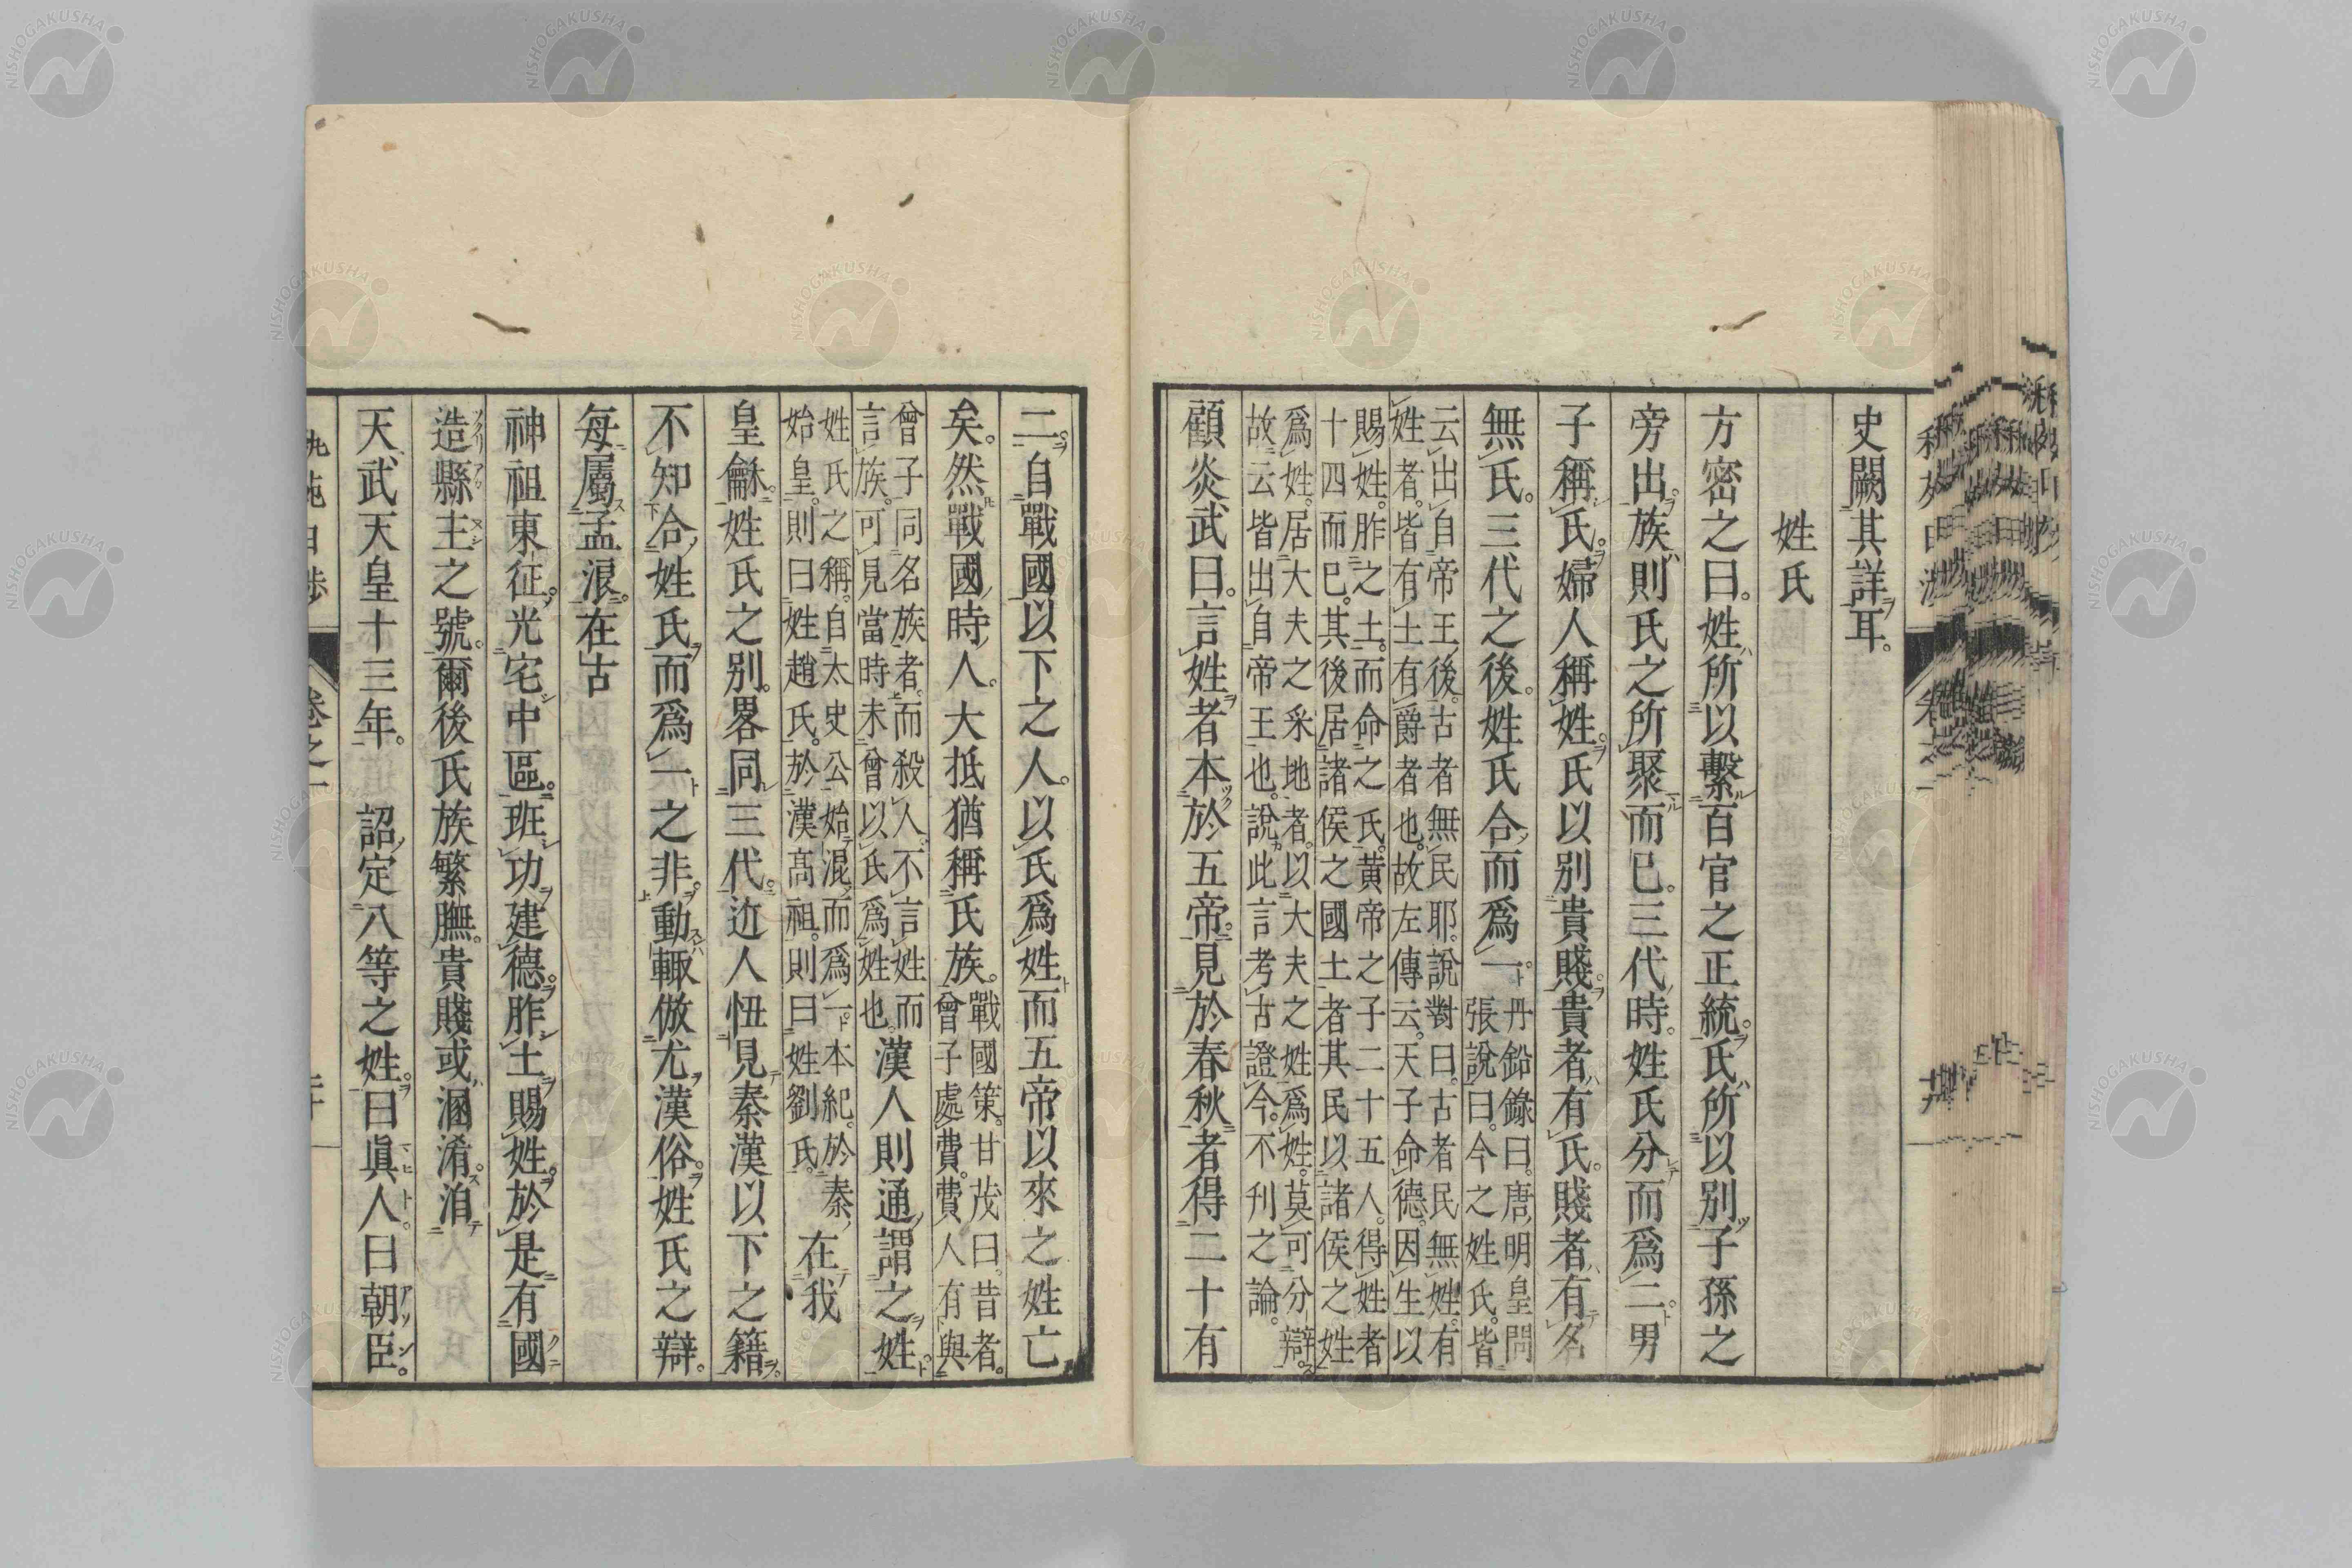 史闕其詳耳。
姓氏
方密之曰。姓所以繫百官之正統。氏所以別子孫之
旁出。族則氏之所聚而已。三代時。姓氏分而爲二。男
子稱氏。婦人稱姓。氏以別貴賤。貴者有氏。賤者有名
無氏。三代之後。姓氏合而爲一。
丹鉛錄曰。唐明皇問
張說曰。今之姓氏。皆
云出自帝王後。古者無民耶。說對曰。古者民無姓。有
姓者。皆有土有爵者也。故左傳云。天子命德。因生以
賜姓。胙之土。而命之氏。黃帝之子二十五人。得姓者
十四而已。其後居諸侯之國土者其民以諸侯之姓
爲姓。居大夫之采地者。以大夫之姓爲姓。莫可分辯。
故云皆出自帝王也。說此言考古證今。不刋之論。
顧炎武曰。言姓者本於五帝。見於春秋者得二十有
二。自戰國以下之人。以氏爲姓而五帝以來之姓亡
矣。然戰國時人。大抵猶稱氏族。
戰國策。甘茂曰。昔者。
曾子處費。費人有與
曾子同名族者。而殺人。不言姓而
言族。可見當時未曾以氏爲姓也。
漢人則通謂之姓。
姓氏之稱。自太史公始混而爲一。本紀。於秦
始皇。則曰姓趙氏。於漢高祖。則曰姓劉氏。
在我
皇龢。姓氏之別。畧同三代。近人忸見秦漢以下之籍。
不知合姓氏而爲一之非。動輙倣尤漢俗。姓氏之辯。
每屬孟浪。在古
神祖東征。光宅中區。班功建德。胙土賜姓。於是有國
造縣主之號。爾後氏族繁膴。貴賤或溷淆。洎
天武天皇十三年。詔定八等之姓。曰眞人。曰朝臣。
卷之一